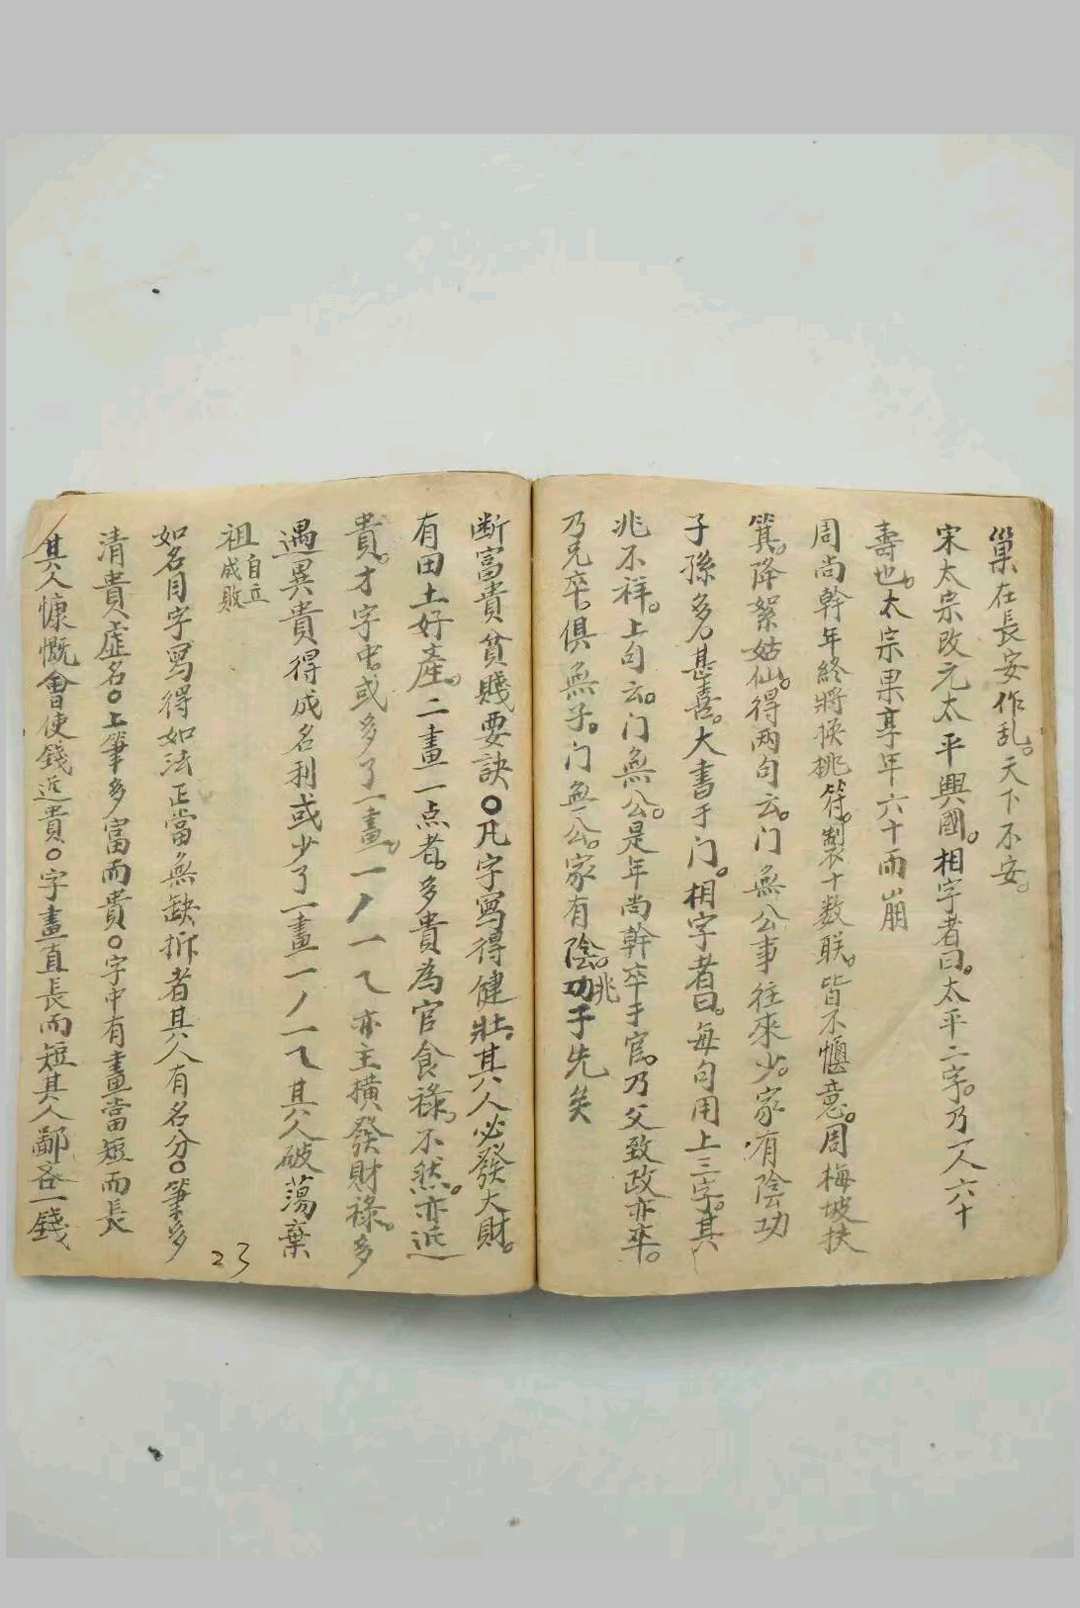 巢在長安作乱。天下不安。
宋太宗改元太平興國。相字者曰。太平二字。乃一人六十
壽也。太宗果享年六十而崩
周尚幹年終將换桃符。製十数联。皆不惬意。周梅坡扶
箕。降紫姑仙。得两句云。门無公事往來少。家有陰功
子孫多。甚喜。大書于门。相字者曰。每句用上三字。其
兆不祥。上句云。门無公。是年尚幹卒于官。乃父致政亦卒。
乃兄卒。俱無子。门無公。家有陰。功兆于先矣
断富貴貧賤要訣〇凡字寫得健壯。其人必發大財。
有田土好產。二畫一点者。多貴為官食祿。不然。亦近
貴。才字中。或多了一畫。一丿一乀亦主横發財祿。多
遇異貴得成名利或少了一畫一丿一乀其人破蕩棄
祖自立成敗
如名目字寫得如法正當無缺折者其人有名分〇筆多
清貴人虛名〇上筆多富而貴〇字中有畫當短而長
其人慷慨會使錢近貴〇字畫直長而短其人鄙吝一錢
23